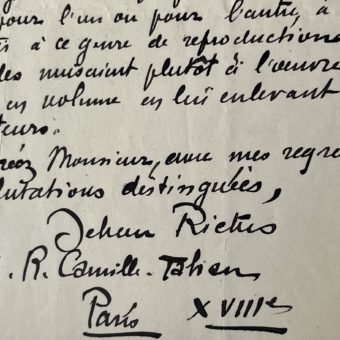 pour l'un ou pour l'autre, à
à ce genre de reproductions
nuisaient plutôt à l'œuvre
en volume en lui enlevant
teurs.
réez Monsieur, avec mes regre
lutations distinguées,
Jehan Rictus
R. Camille-Tahan
Paris XVIIIe